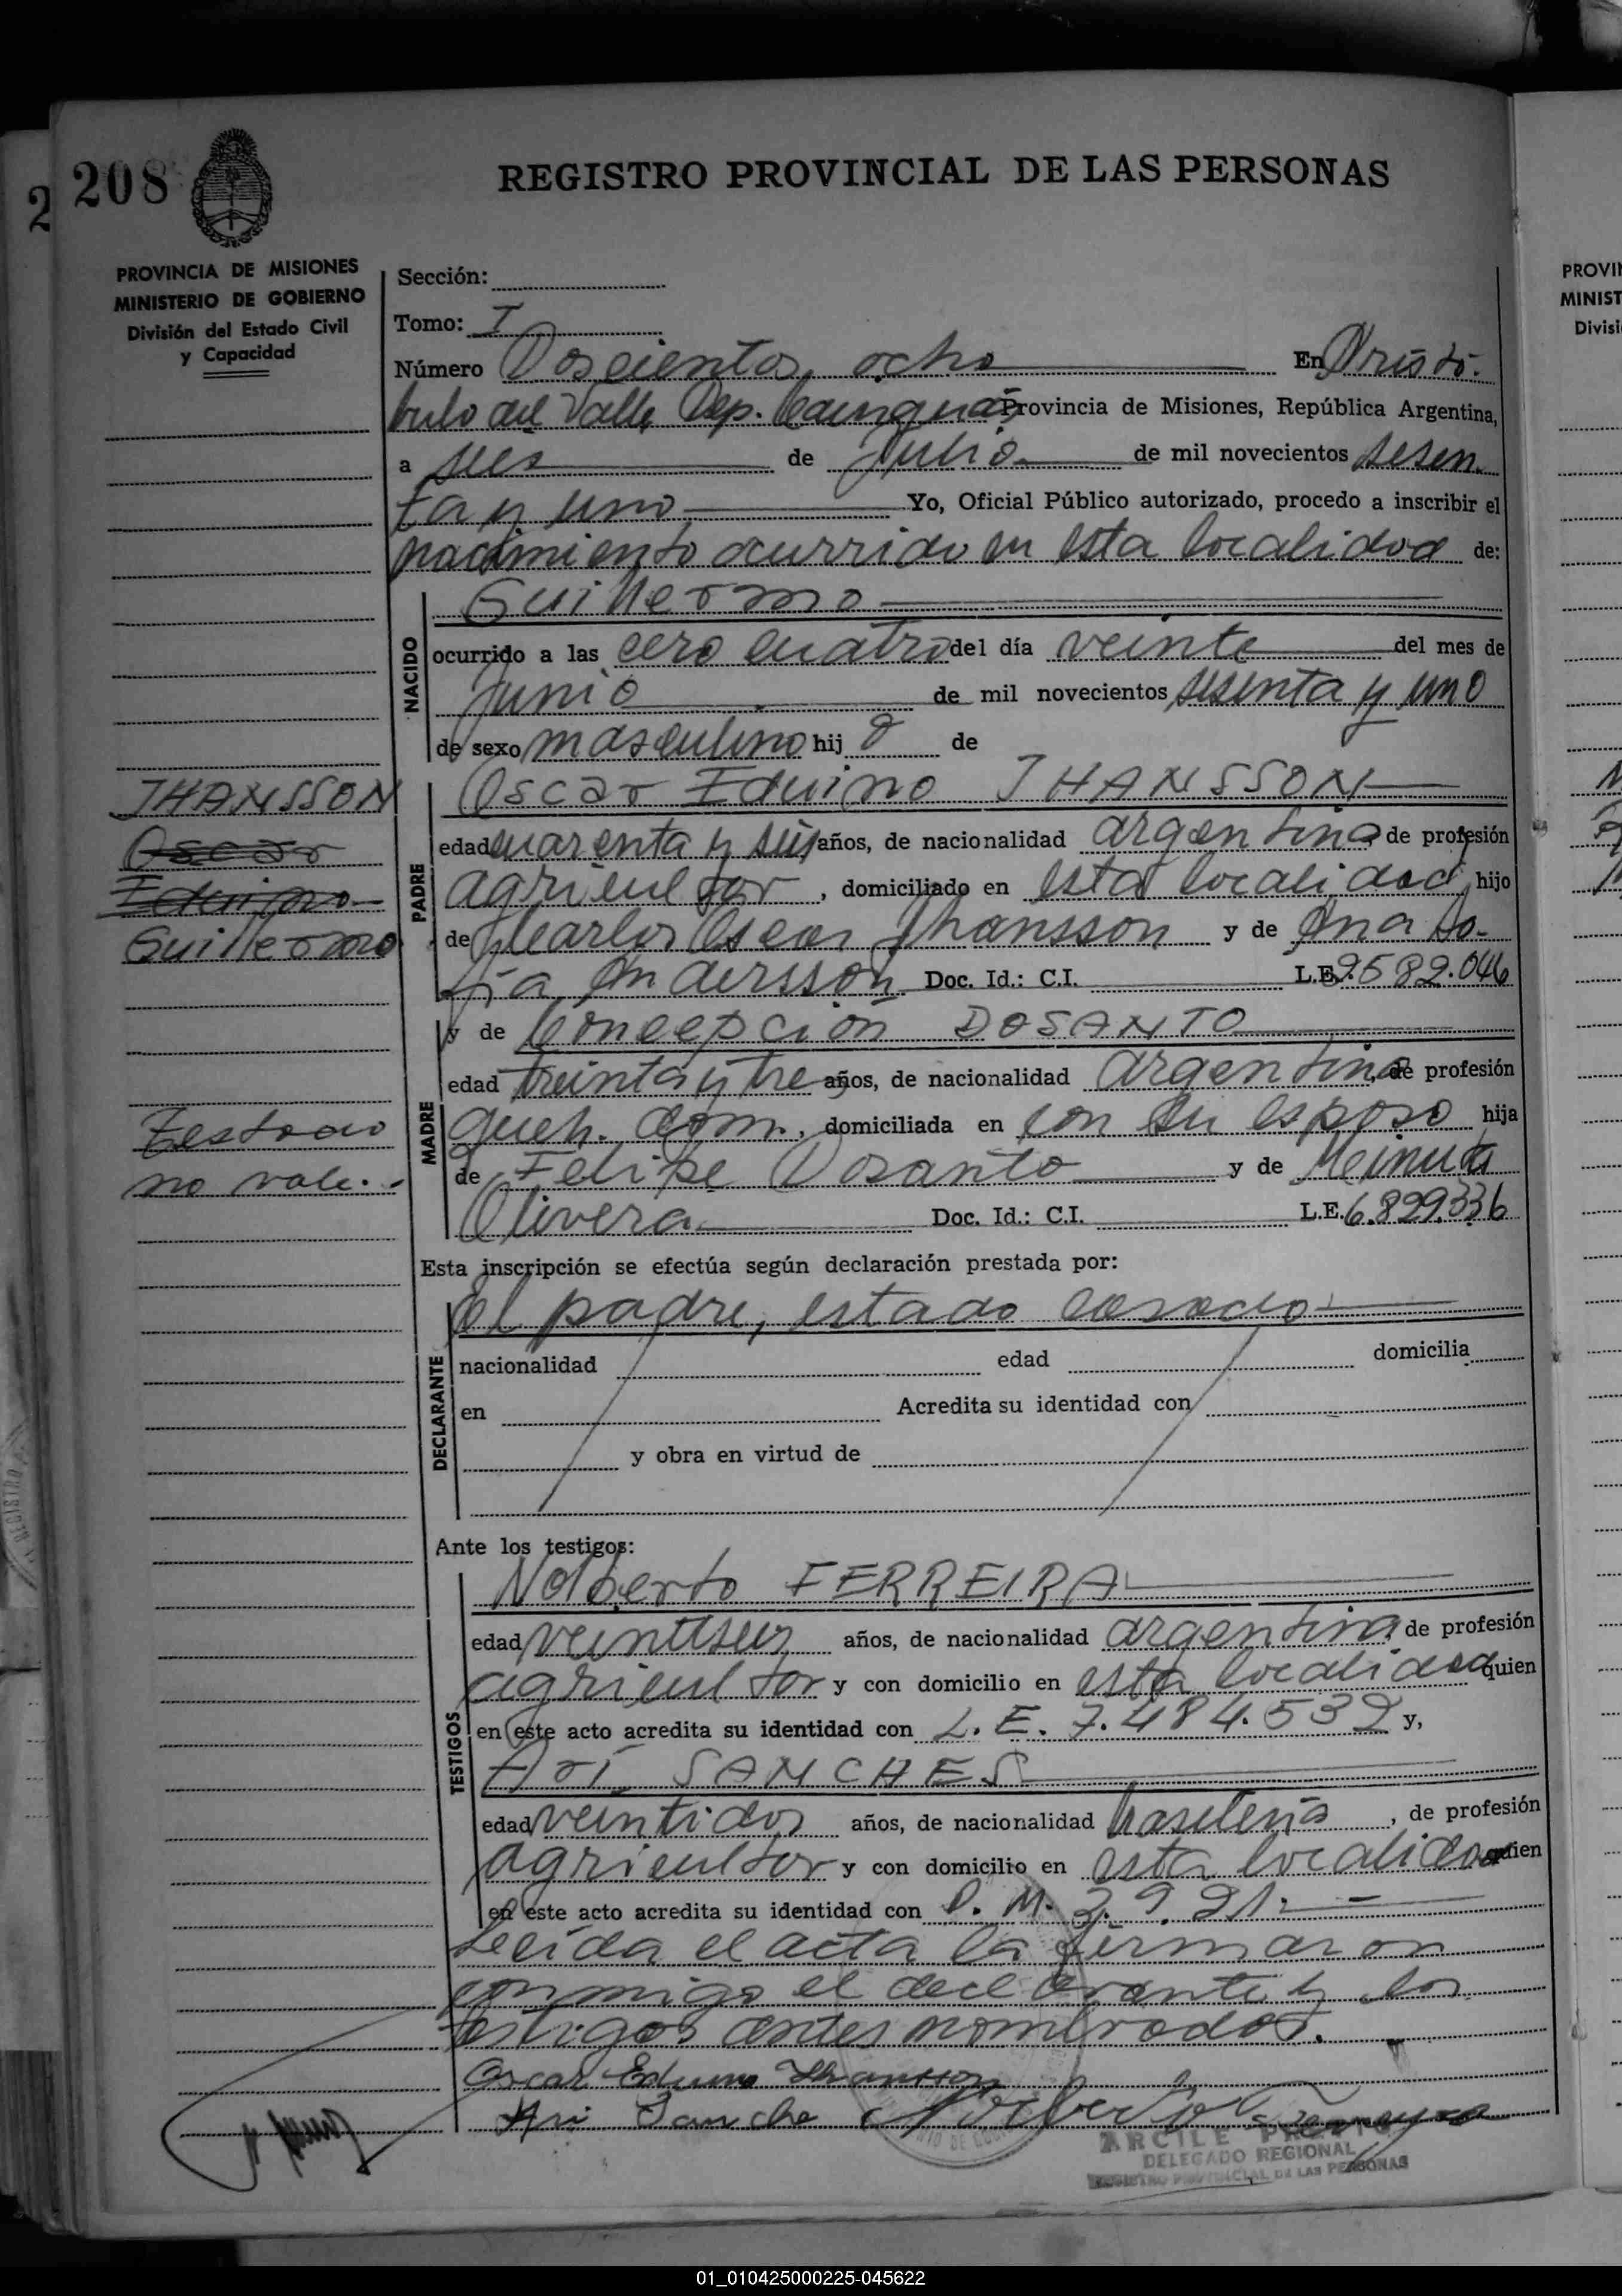 208
REGISTRO PROVINCIAL DE LAS PERSONAS
PROVINCIA DE MISIONES
MINISTERIO DE GOBIERNO
División del Estado Civil
y Capacidad
Sección:
Tomo: I
Número Doscientos ocho En Aristó-
bulo del Valle Dep. Cainguás Provincia de Misiones, República Argentina,
a seis de Julio de mil novecientos sesen
ta y uno Yo, Oficial Público autorizado, procedo a inscribir el
nacimiento ocurrido en esta localidad de:
NACIDO
Guillermo
ocurrido a las cero cuatro del día veinte del mes de
Junio de mil novecientos sesenta y uno
de sexo masculino hij o de
JHANSSON
Oscar
Eduino
Guillermo
Testado
no vale.-
PADRE
Oscar Eduino JHANSSON
edad cuarenta y seis años, de nacionalidad argentina de profesión
agricultor, domiciliado en esta localidad, hijo
de Carlos Oscar Jhansson y de Ana So-
fía Andersson Doc. Id.: C.I. L.E. 2.589.046
MADRE
y de Concepción DOSANTO
edad treinta y tre años, de nacionalidad argentina, de profesión
queh. dom., domiciliada en con su esposo hija
de Felipe Dosanto y de
Olivera Doc. Id.: C.I. L.E. 6.829.336
Esta inscripción se efectúa según declaración prestada por:
DECLARANTE
el padre, estado casado
nacionalidad edad domicilia
en Acredita su identidad con
y obra en virtud de
Ante los testigos:
TESTIGOS
Nolberto FERREIRA
edad veintiseis años, de nacionalidad argentina, de profesión
agricultor y con domicilio en esta localidad quien
en este acto acredita su identidad con L.E. 7.484.532 y,
Ari SANCHES
edad veintidos años, de nacionalidad brasileria, de profesión
agricultor y con domicilio en esta localidad quien
en este acto acredita su identidad con D.M. 3.921.-
Leída el acta la firmaron
conmigo el declarante y los
testigos antes nombrados.
Oscar Eduino Jhansson
Ari Sanche Nolberto Ferreyra
DELEGADO REGIONAL
REGISTRO PROVINCIAL DE LAS PERSONAS
PROVIN
MINIST
Divisi
01_010425000225-045622